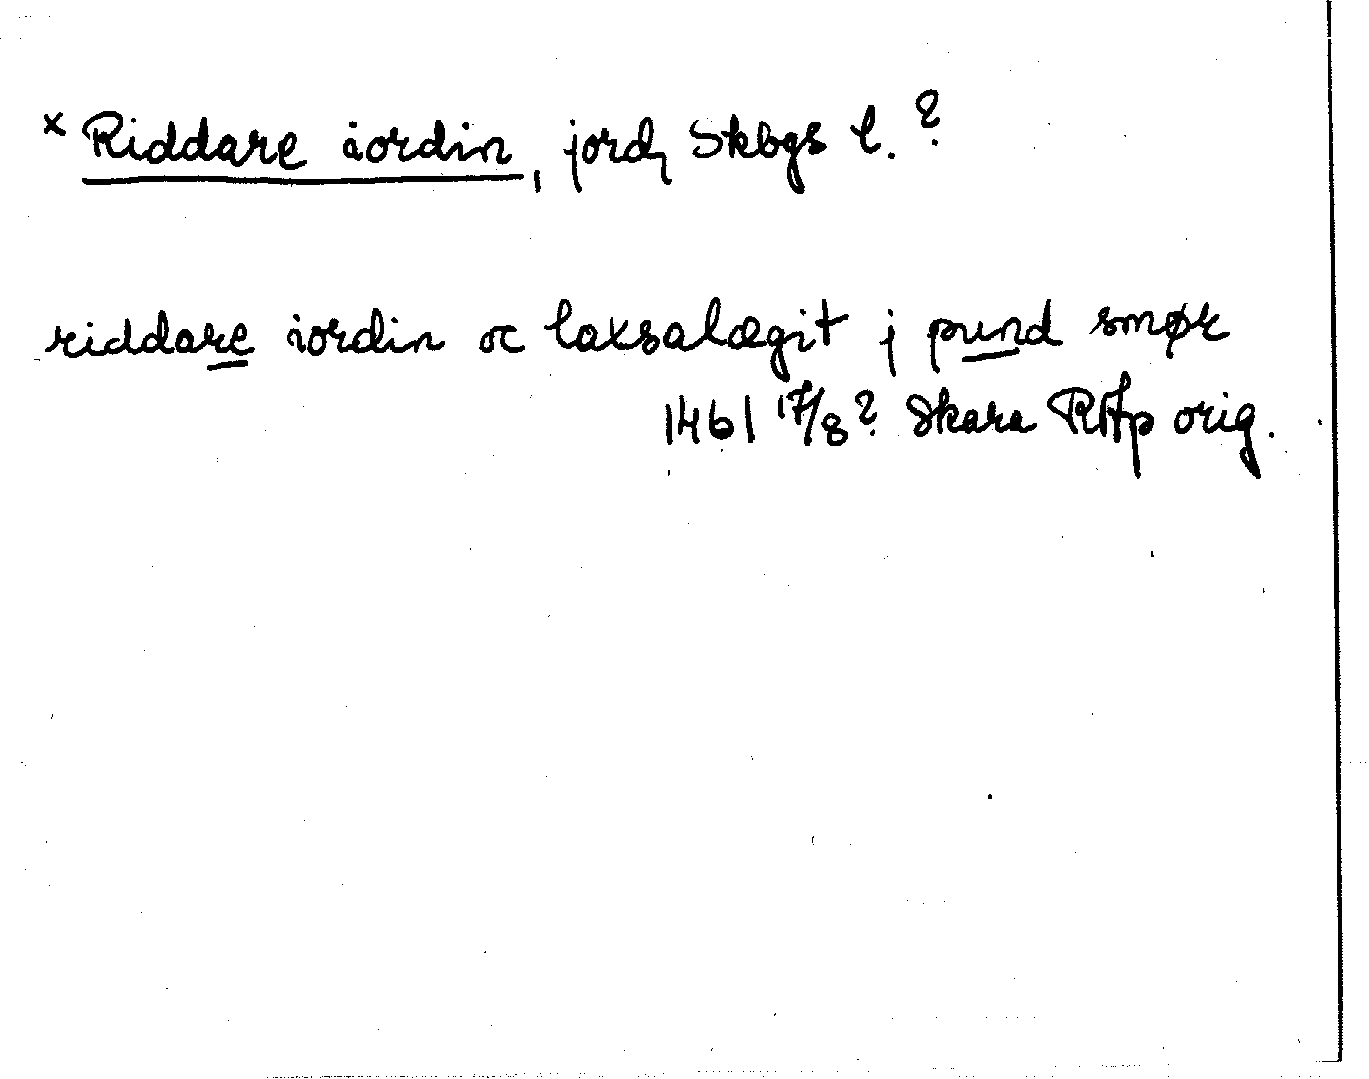 × Riddare iordin, jord, Skbgs l.?
riddare iordin oc laxsalægit j pund smør
1461 17/8? Skara RAp orig.